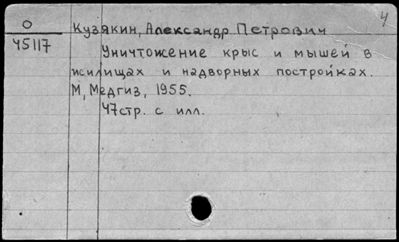 4
О
45117
Кузякин, Александр Петрович
Уничтожение крыс и мышей в
жилищах и надворных постройках.
М, Медгиз, 1955.
47стр. с илл.